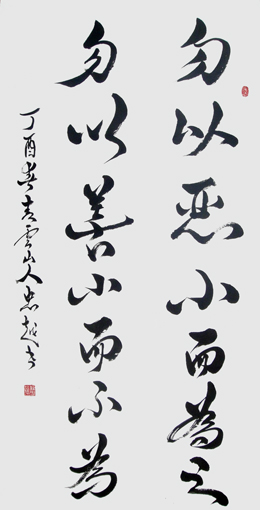 勿以恶小而為之
勿以善小而不為
丁酉春青雲山人忠超书